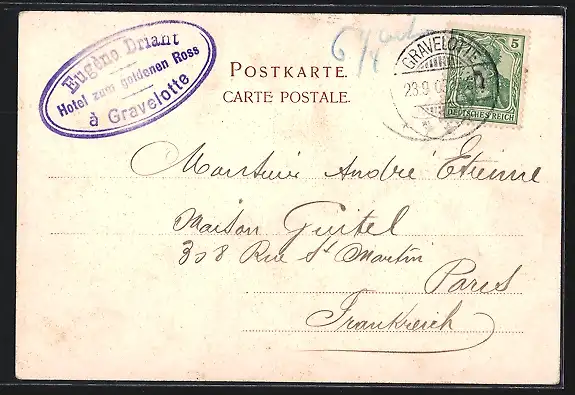 Eugène Driant
Hotel zum goldenen Ross
à Gravelotte
POSTKARTE.
CARTE POSTALE.
GRAVELOTTE
23.9.0
5
DEUTSCHES REICH
Monsieur André Etienne
Maison Guitel
308 Rue St Martin
Paris
Frankreich